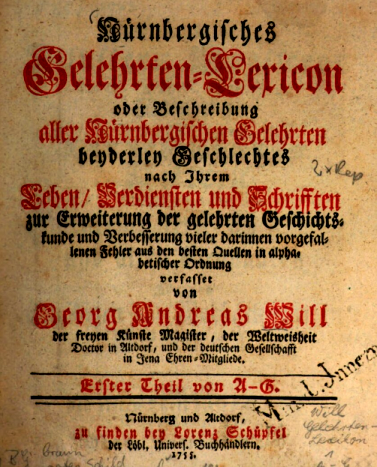 Nürnbergisches
Gelehrten-Lexicon
oder Beschreibung
aller Nürnbergischen Gelehrten
beyderley Geschlechtes
nach Ihrem
Leben/ Verdiensten und Schrifften
zur Erweiterung der gelehrten Geschichts-
kunde und Verbesserung vieler darinnen vorgefal-
lenen Fehler aus den besten Quellen in alpha-
betischer Ordnung
verfasset
von
Georg Andreas Will
der freyen Künste Magister, der Weltweisheit
Doctor in Altdorf, und der deutschen Gesellschafft
in Jena Ehren-Mitgliede.
Erster Theil von A-G.
Nürnberg und Altdorf,
zu finden bey Lorenz Schüpfel
der Löbl. Univers. Buchhändlern.
1755.
Will
Gelehrten-
Lexikon